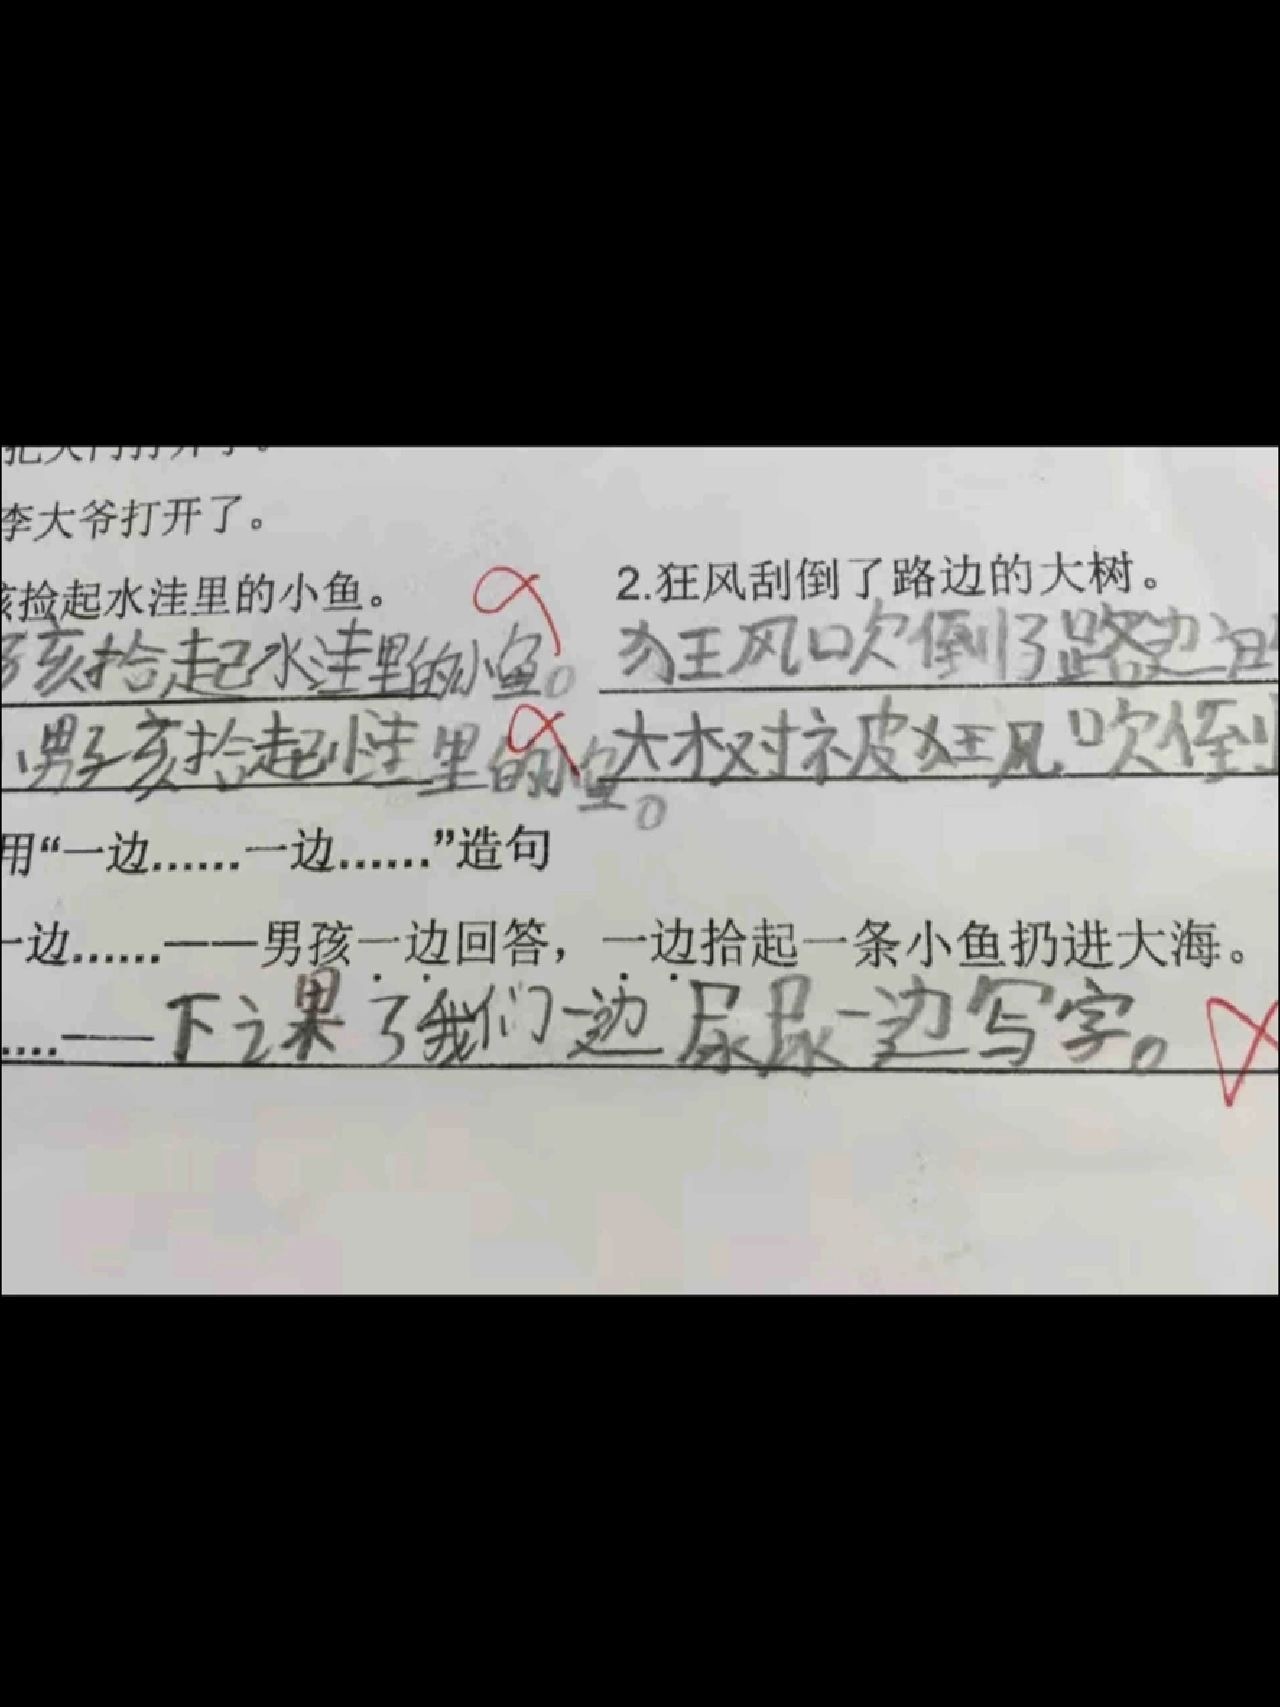 把大门打开了。
李大爷打开了。
孩捡起水洼里的小鱼。
孩拾起水洼里的小鱼。
男孩拾起水洼里的小鱼。
2.狂风刮倒了路边的大树。
狂风吹倒了路边的
大树被狂风吹倒
用“一边……一边……”造句
一边……——男孩一边回答，一边拾起一条小鱼扔进大海。
……——下课了我们一边尿尿一边写字。